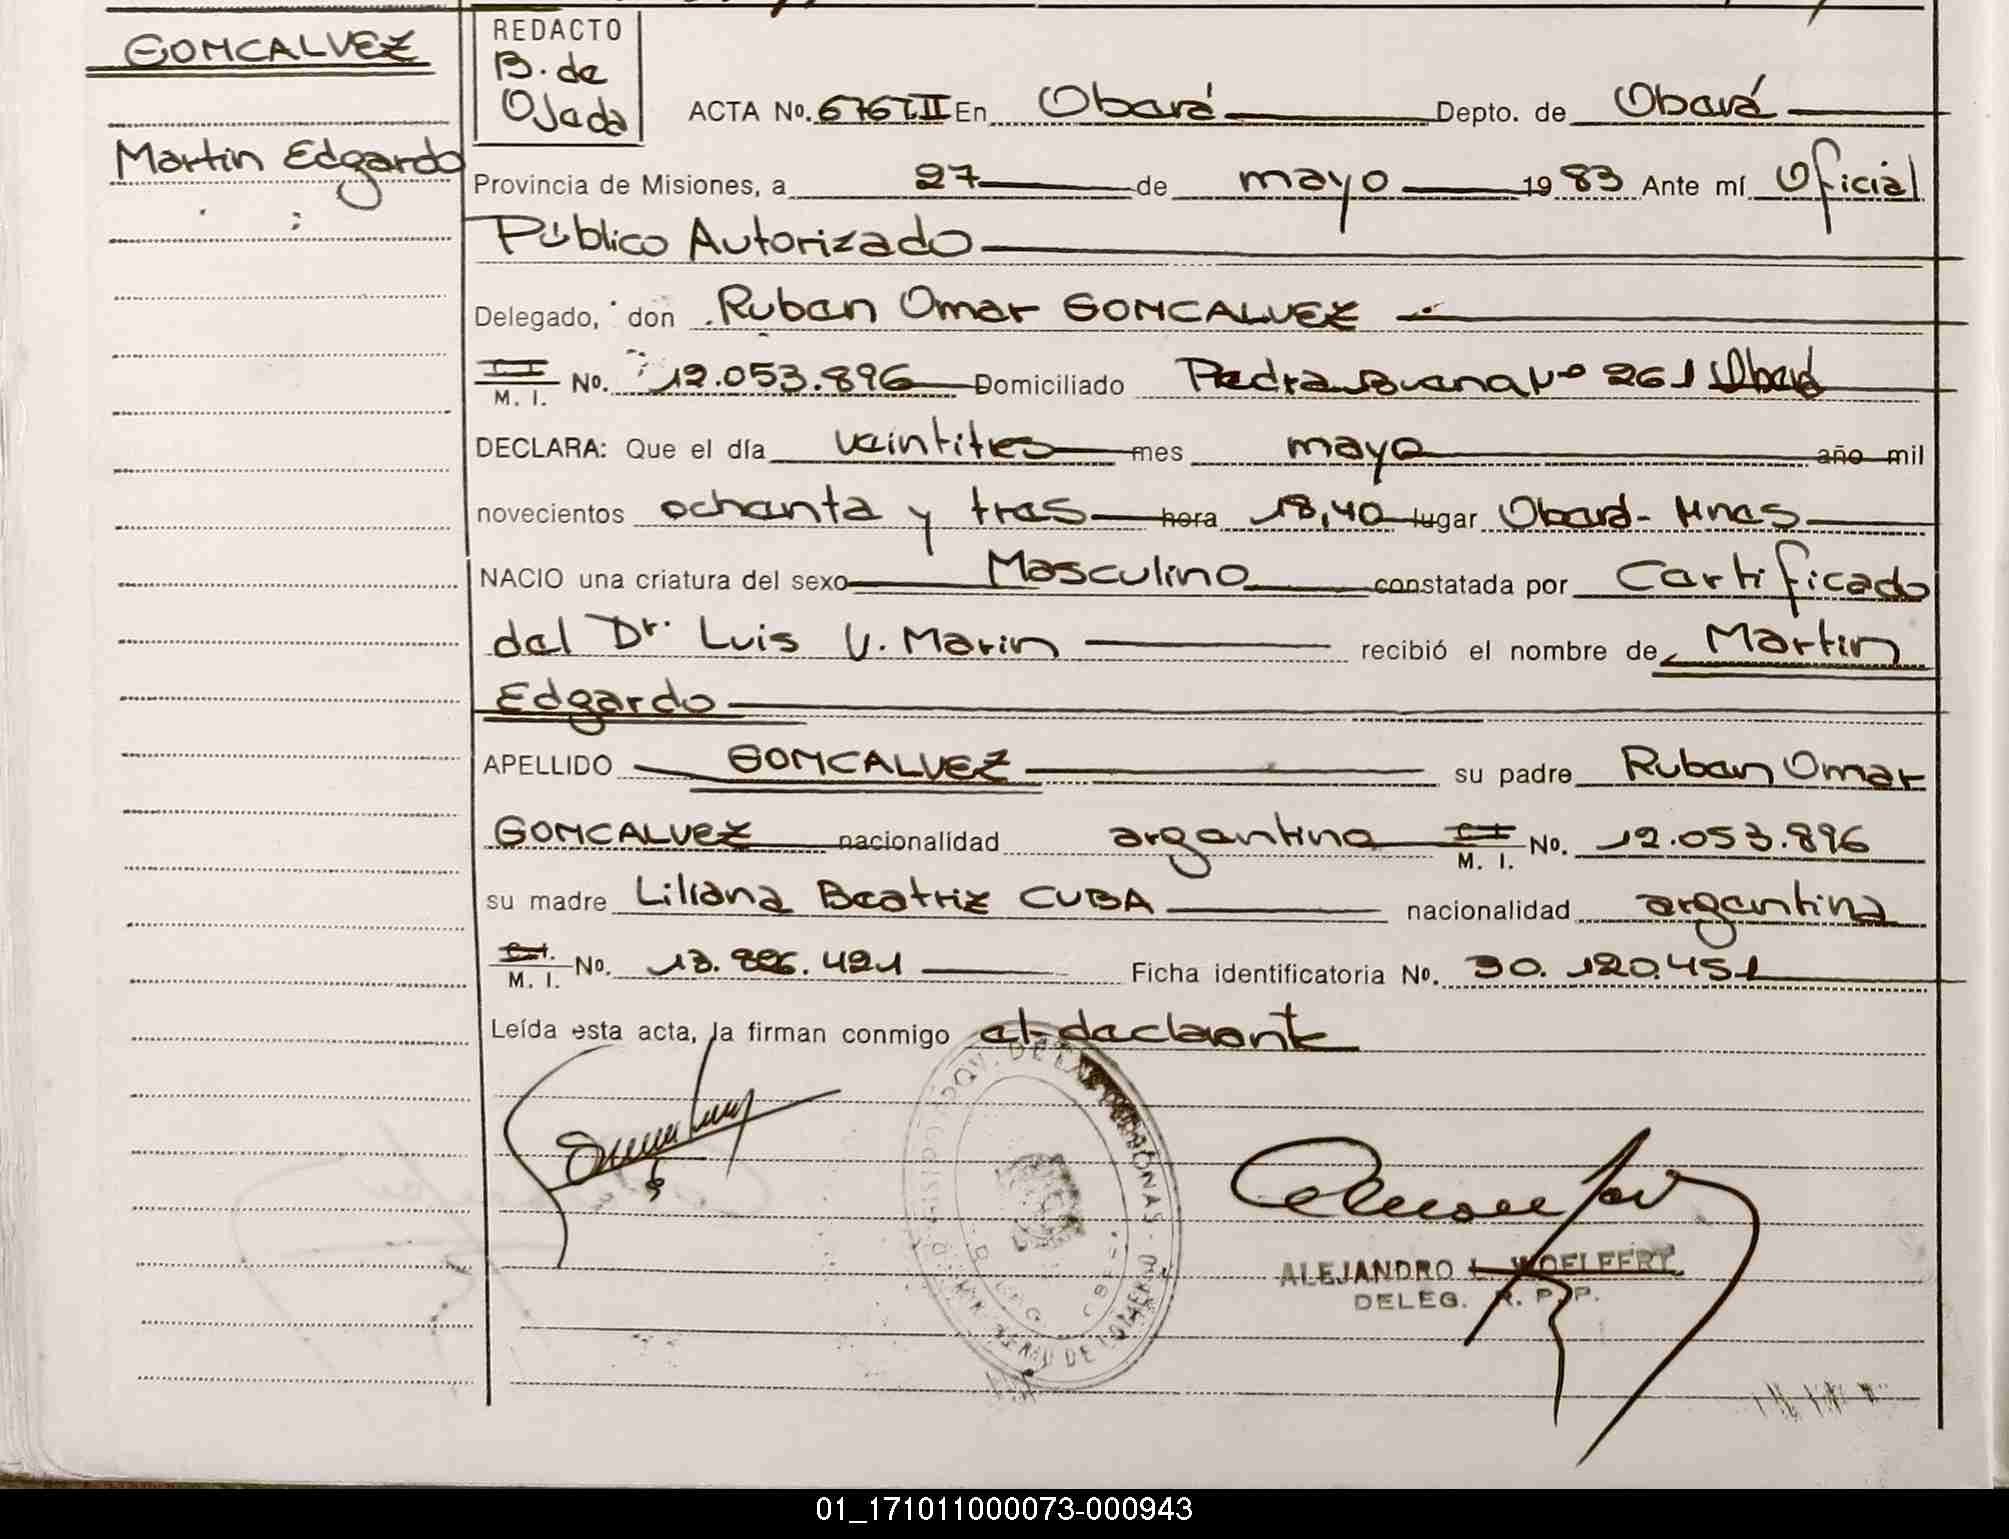 GONCALVEZ
Martin Edgardo
REDACTO
B. de
Ojeda
ACTA No. 676TII En Oberá Depto. de Oberá
Provincia de Misiones, a 27 de mayo 1983 Ante mí Oficial
Público Autorizado
Delegado, don Ruben Omar GONCALVEZ
C. I.
M. I. No. 12.053.896 Domiciliado Piedra Buena Nº 261 Oberá
DECLARA: Que el día veintitres mes mayo año mil
novecientos ochenta y tres hora 18,40 lugar Oberá - Mnes
NACIO una criatura del sexo Masculino constatada por Certificado
del Dr. Luis V. Marin recibió el nombre de Martin
Edgardo
APELLIDO GONCALVEZ su padre Ruben Omar
GONCALVEZ nacionalidad argentina C. I. M. I. No. 12.053.896
su madre Liliana Beatriz CUBA nacionalidad argentina
C. I.
M. I. No. 13.886.421 Ficha identificatoria No. 30.120.451
Leída esta acta, la firman conmigo el declarante
ALEJANDRO L. WOELFERT
DELEG. R. P. P.
01_171011000073-000943